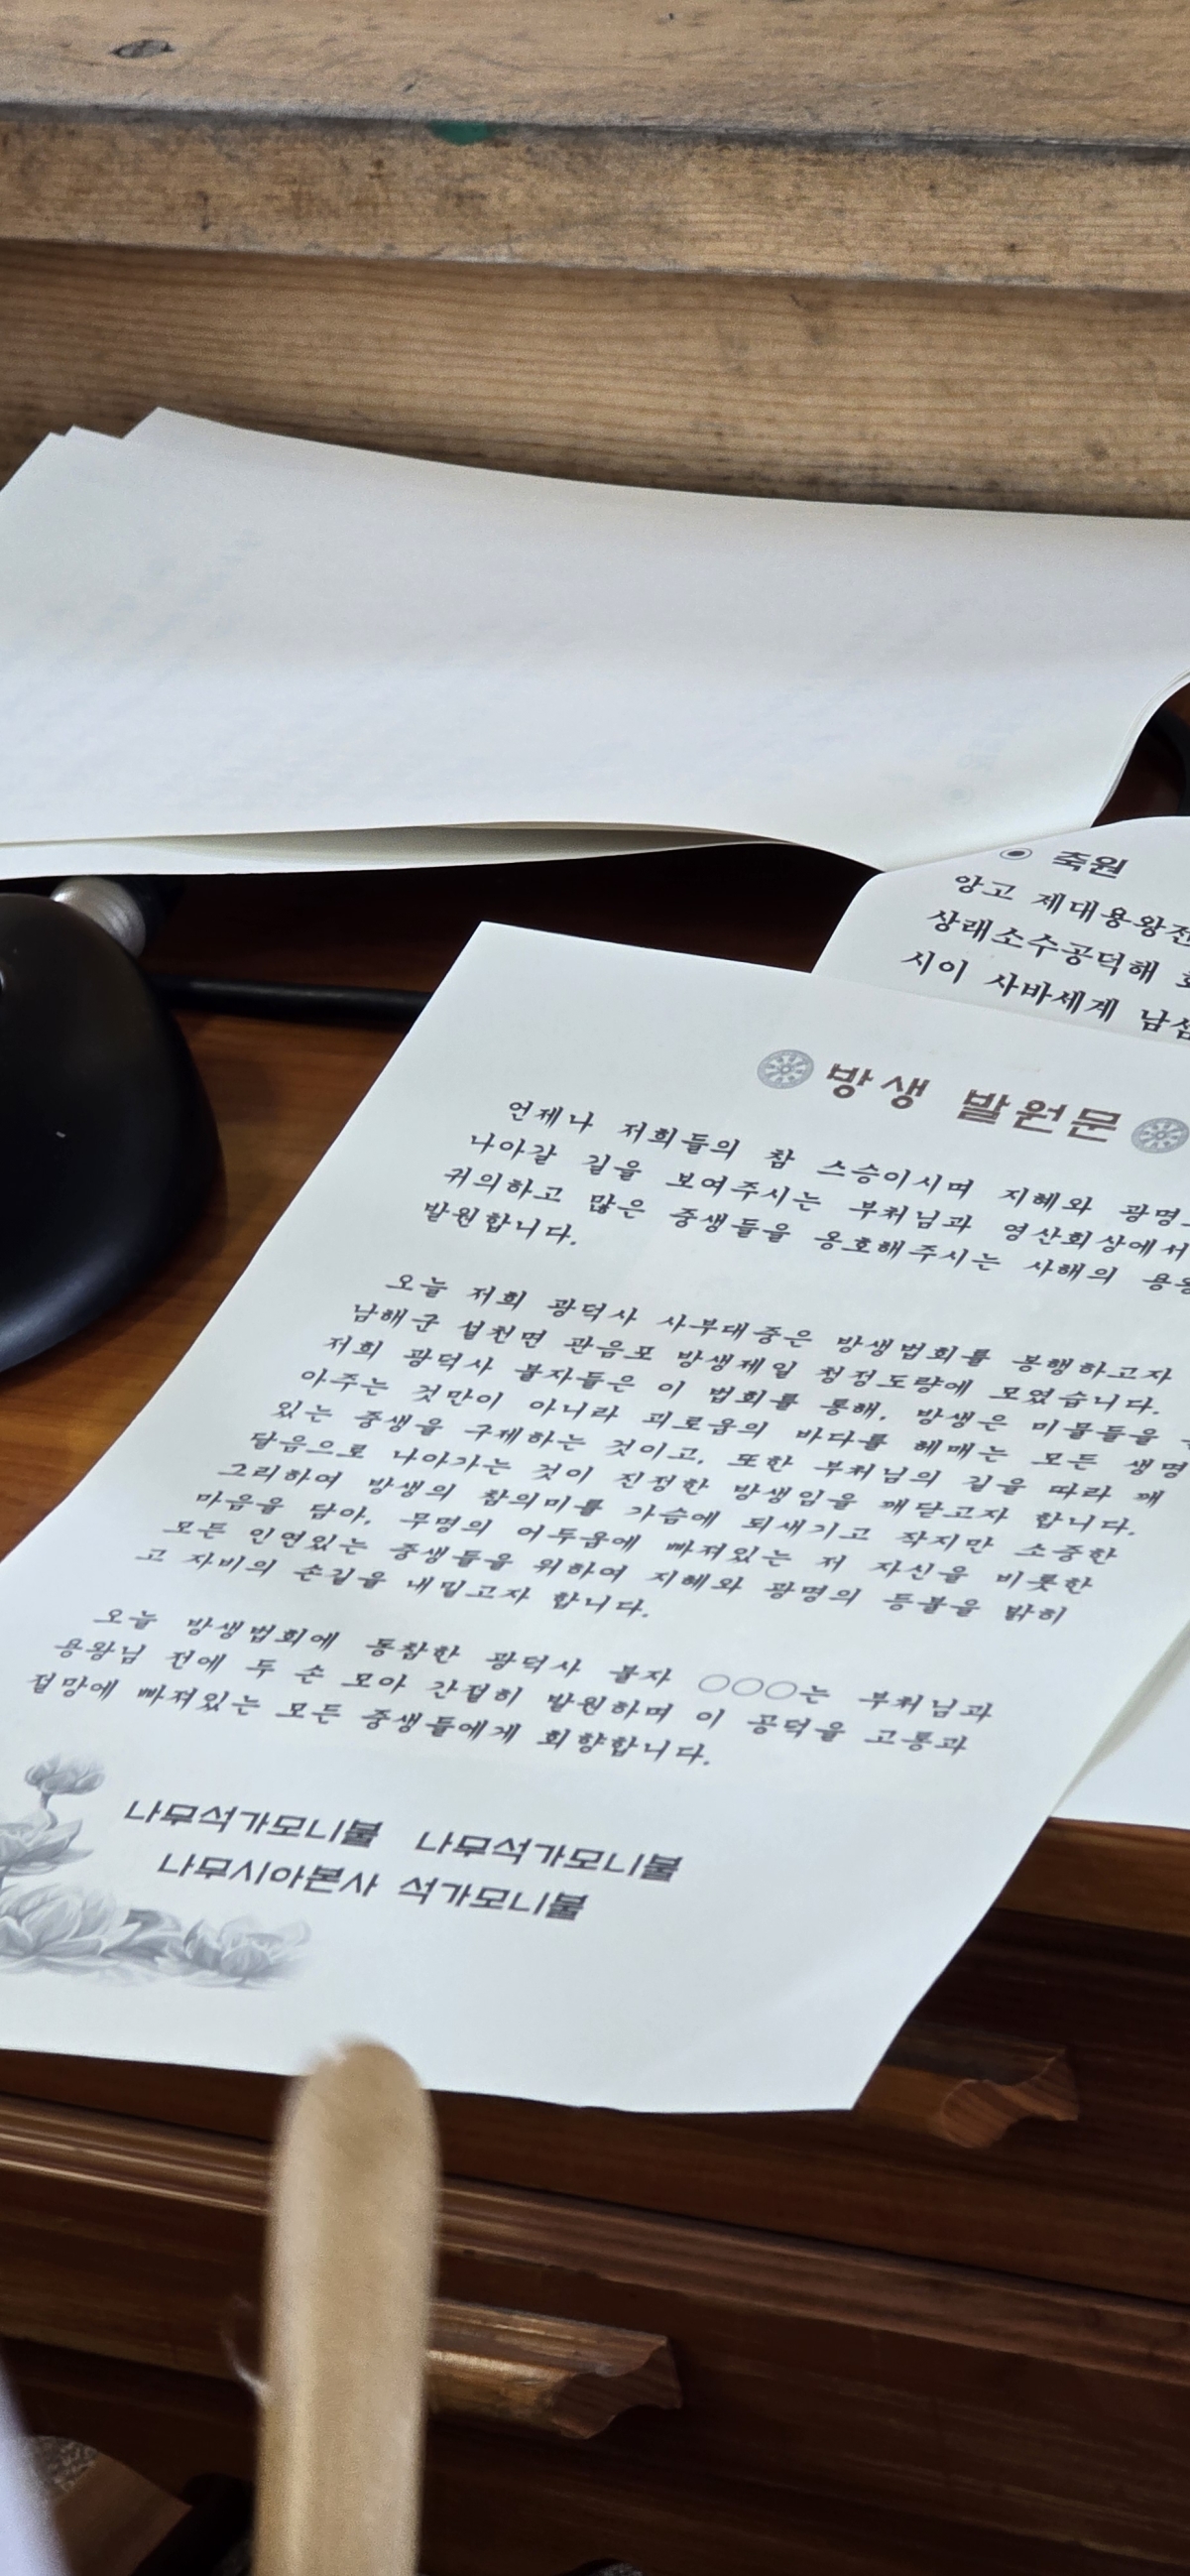 축원
앙고 제대용왕전
상래소수공덕해
시이 사바세계 남섬
방생 발원문
언제나 저희들의 참 스승이시며 지혜와 광명
나아갈 길을 보여주시는 부처님과 영산회상에서
귀의하고 많은 중생들을 옹호해주시는 사해의 용왕
발원합니다.
오늘 저희 광덕사 사부대중은 방생법회를 봉행하고자
남해군 설천면 관음포 방생제일 청정도량에 모였습니다.
저희 광덕사 불자들은 이 법회를 통해, 방생은 미물들을
아주는 것만이 아니라 괴로움의 바다를 헤매는 모든 생명
있는 중생을 구제하는 것이고, 또한 부처님의 길을 따라 깨
달음으로 나아가는 것이 진정한 방생임을 깨닫고자 합니다.
그리하여 방생의 참의미를 가슴에 되새기고 작지만 소중한
마음을 담아, 무명의 어두움에 빠져있는 저 자신을 비롯한
모든 인연있는 중생들을 위하여 지혜와 광명의 등불을 밝히
고 자비의 손길을 내밀고자 합니다.
오늘 방생법회에 동참한 광덕사 불자 ○○○는 부처님과
용왕님 전에 두 손 모아 간절히 발원하며 이 공덕을 고통과
절망에 빠져있는 모든 중생들에게 회향합니다.
나무석가모니불 나무석가모니불
나무시아본사 석가모니불